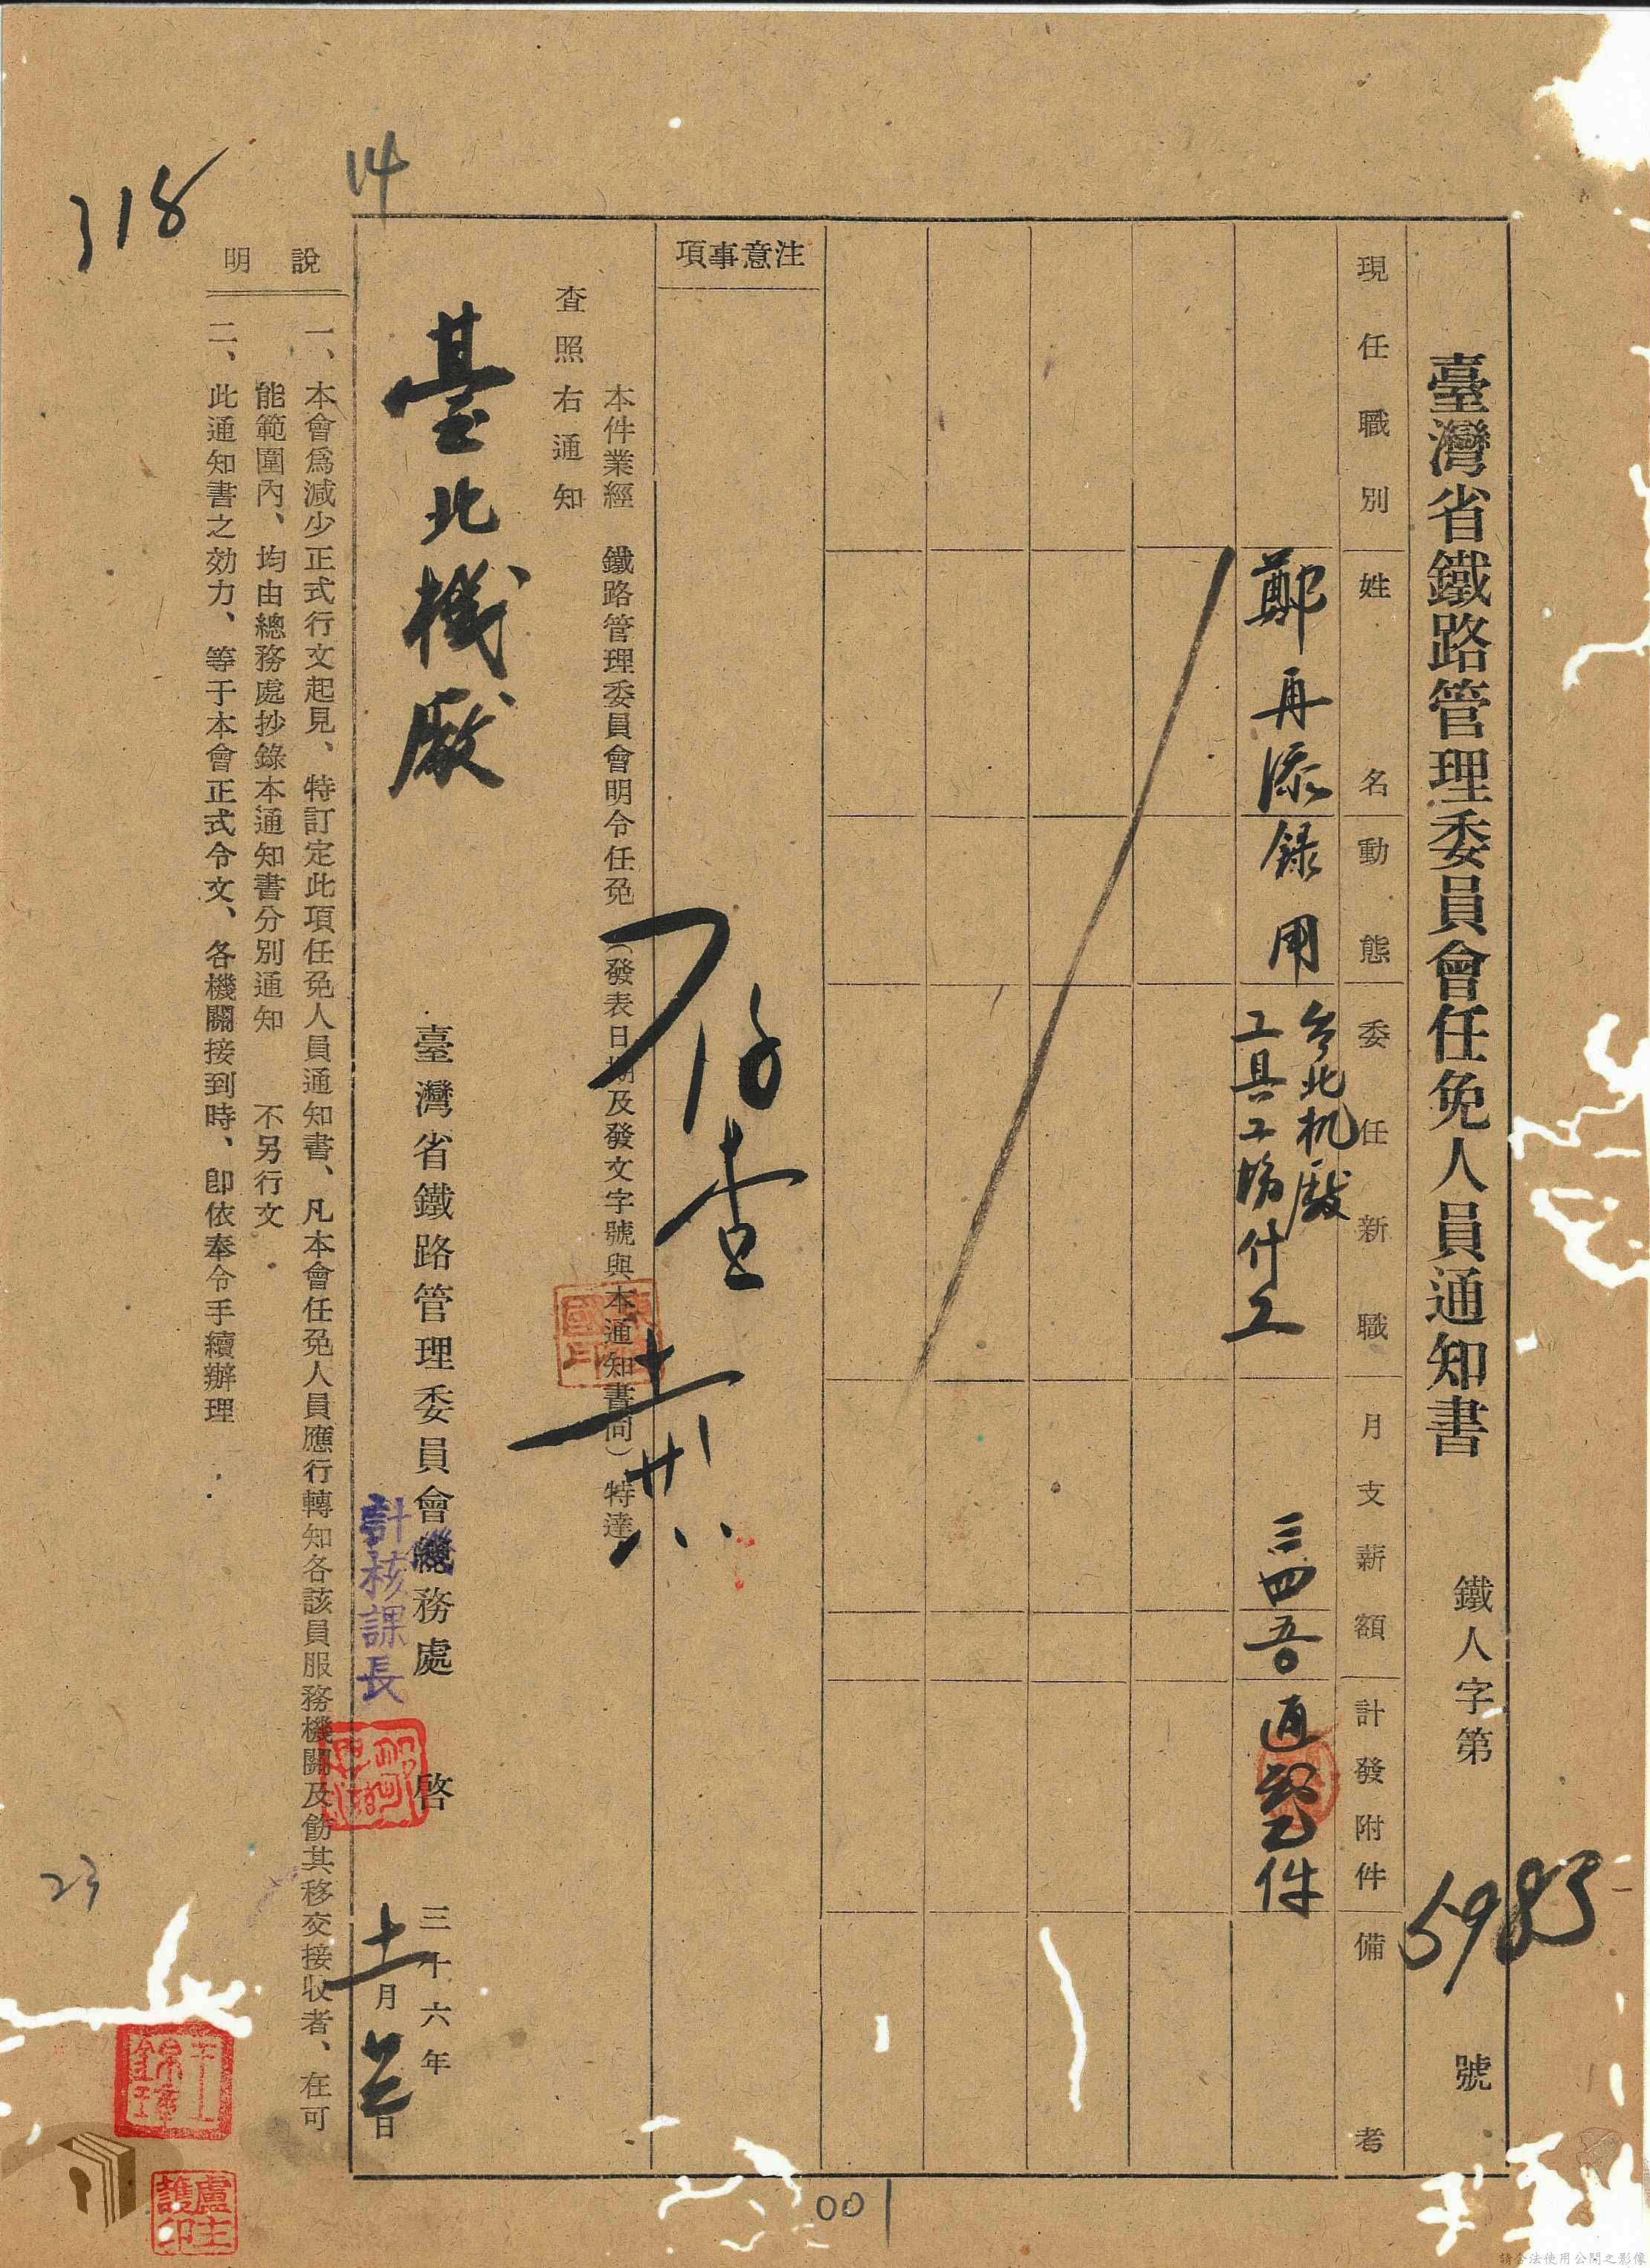 臺灣省鐵路管理委員會任免人員通知書
鐵人字第5983號
現任職別
姓名
動態
委任新職
月支薪額
計發附件
備考
鄭再添
錄用
台北机廠
工具工場什工
三四吾
通知書乙件
注意事項
本件業經 鐵路管理委員會明令任免(發表日期及發文字號與本通知書同)特達
查照右通知
臺北機廠
臺灣省鐵路管理委員會總務處 啓
計核課長
三十六年
十一月 日
說明
一、本會爲減少正式行文起見、特訂定此項任免人員通知書、凡本會任免人員應行轉知各該員服務機關及飭其移交接收者、在可
能範圍內、均由總務處抄錄本通知書分別通知 不另行文
二、此通知書之効力、等于本會正式令文、各機關接到時、卽依奉令手續辦理
14
318
23
王錦璋
盧主護印
001
請合法使用公開之影像